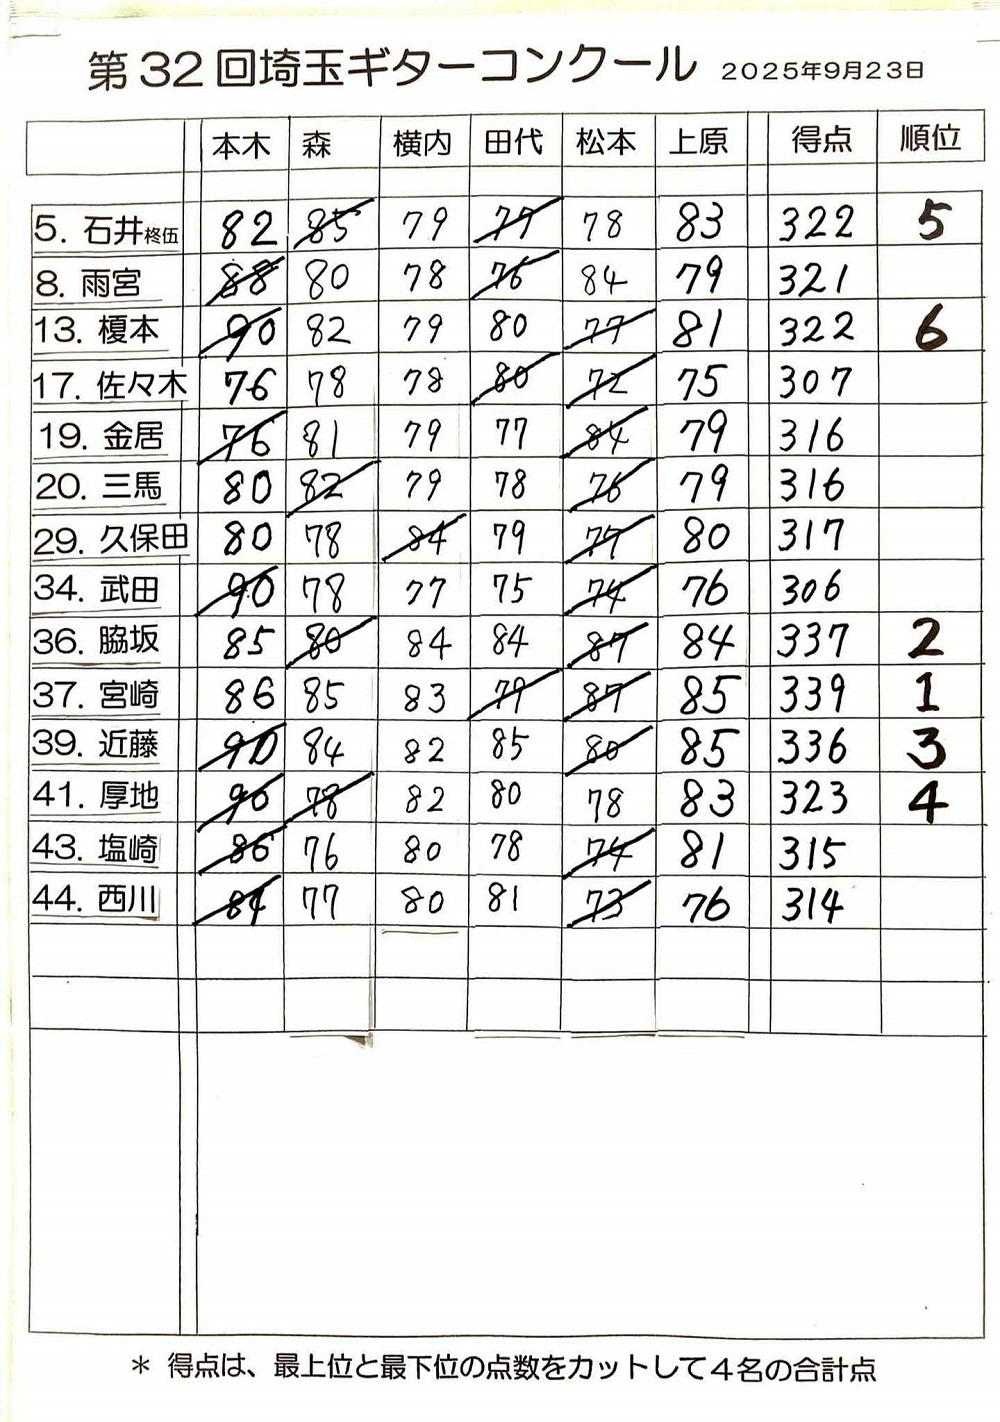 第32回埼玉ギターコンクール 2025年9月23日
本木 森 横内 田代 松本 上原 得点 順位
5. 石井柊伍 82 85 79 77 78 83 322 5
8. 雨宮 88 80 78 76 84 79 321
13. 榎本 90 82 79 80 77 81 322 6
17. 佐々木 76 78 78 80 72 75 307
19. 金居 76 81 79 77 84 79 316
20. 三馬 80 82 79 78 76 79 316
29. 久保田 80 78 84 79 77 80 317
34. 武田 90 78 77 75 74 76 306
36. 脇坂 85 80 84 84 87 84 337 2
37. 宮崎 86 85 83 79 87 85 339 1
39. 近藤 90 84 82 85 80 85 336 3
41. 厚地 90 78 82 80 78 83 323 4
43. 塩崎 86 76 80 78 74 81 315
44. 西川 84 77 80 81 73 76 314
＊ 得点は、最上位と最下位の点数をカットして4名の合計点